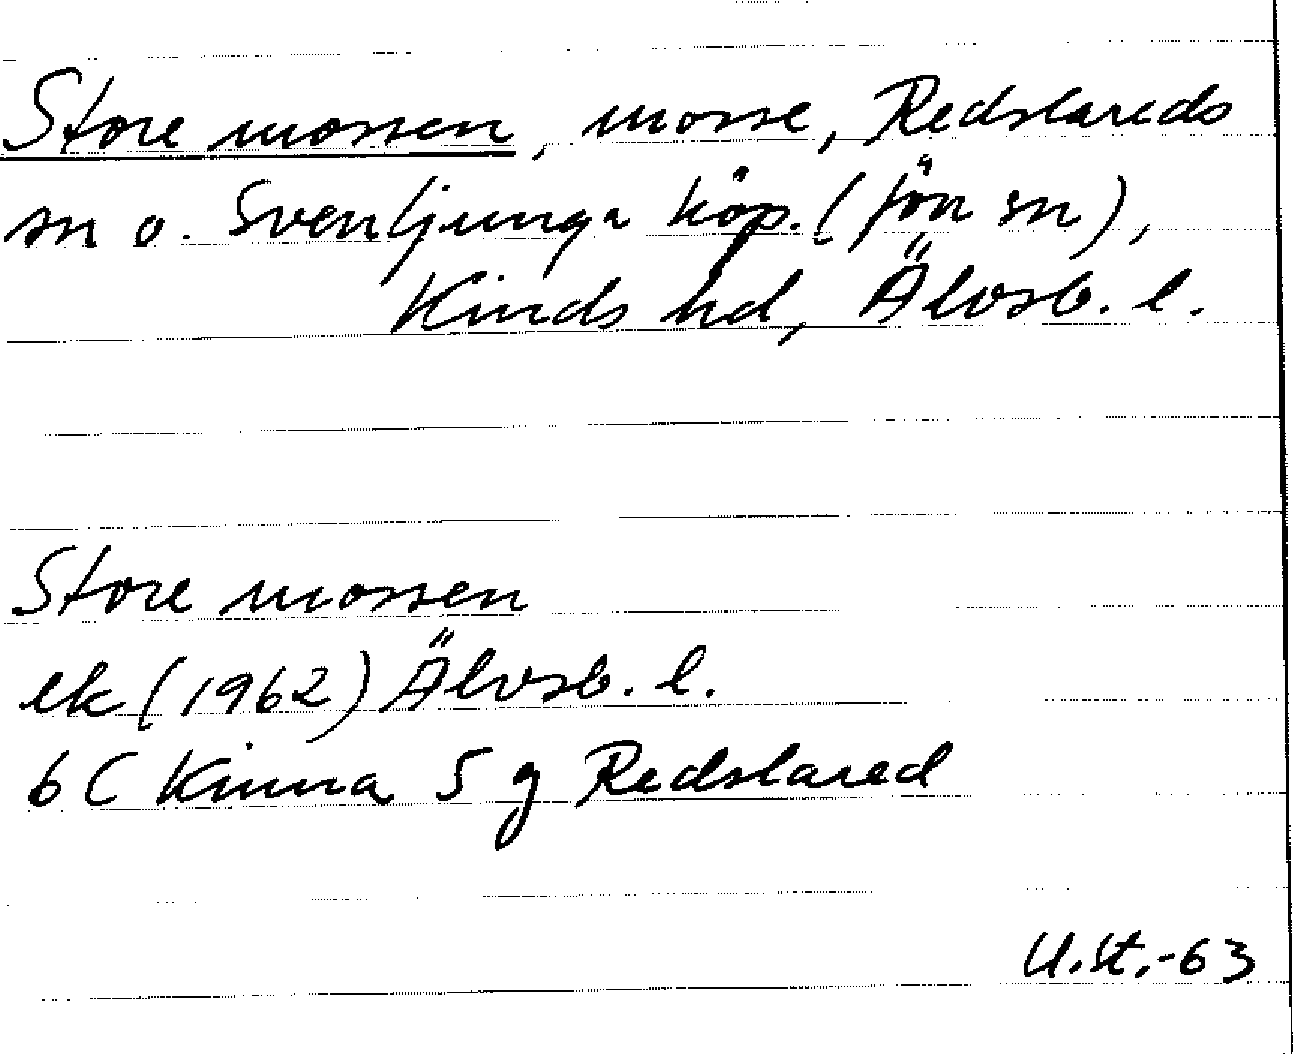 Store mossen, mosse, Redslareds
sn o. Svenljunga köp. (förr sn),
Kinds hd, Älvsb. l.
Store mossen
ek (1962) Älvsb. l.
6 C Kinna 5 g Redslared
U.St.-63